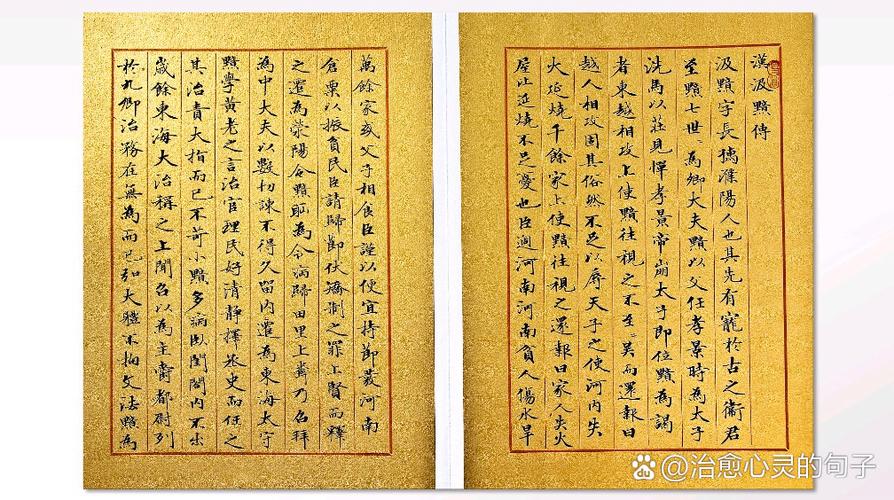 漢汲黯傳
汲黯字長孺濮陽人也其先有寵於古之衛君
至黯七世為卿大夫黯以父任孝景時為太子
洗馬以莊見憚孝景帝崩太子即位黯為謁
者東越相攻上使黯往視之不至吳而還報曰
越人相攻固其俗然不足以辱天子之使河內失
火延燒千餘家上使黯往視之還報曰家人失火
屋比延燒不足憂也臣過河南河南貧人傷水旱
萬餘家或父子相食臣謹以便宜持節發河南
倉粟以振貧民臣請歸節伏矯制之罪上賢而釋
之遷為滎陽令黯恥為令病歸田里上聞乃召拜
為中大夫以數切諫不得久留內遷為東海太守
黯學黃老之言治官理民好清靜擇丞史而任之
其治責大指而已不苛小黯多病臥閨閤內不出
歲餘東海大治稱之上聞召以為主爵都尉列
於九卿治務在無為而已弘大體不拘文法黯為
@治愈心灵的句子